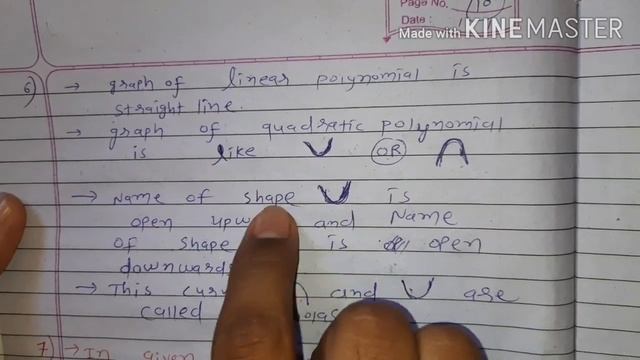 Page No.
Date :
Made with KINEMASTER
6) → graph of linear polynomial is
straight line.
→ graph of quadratic polynomial
is like ∪ OR ∩
→ Name of shape ∪ is
open and Name
of shape is open
→ This and ∪ are
called
7) → In given